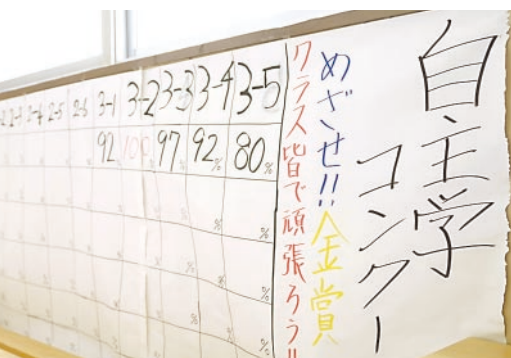 自主学
コンクー
めざせ!!金賞
クラス皆で頑張ろう!!
2-3 2-4 2-5 2-6 3-1 3-2 3-3 3-4 3-5
92% 100% 97% 92% 80%
% % % % %
% % % %
% % % %